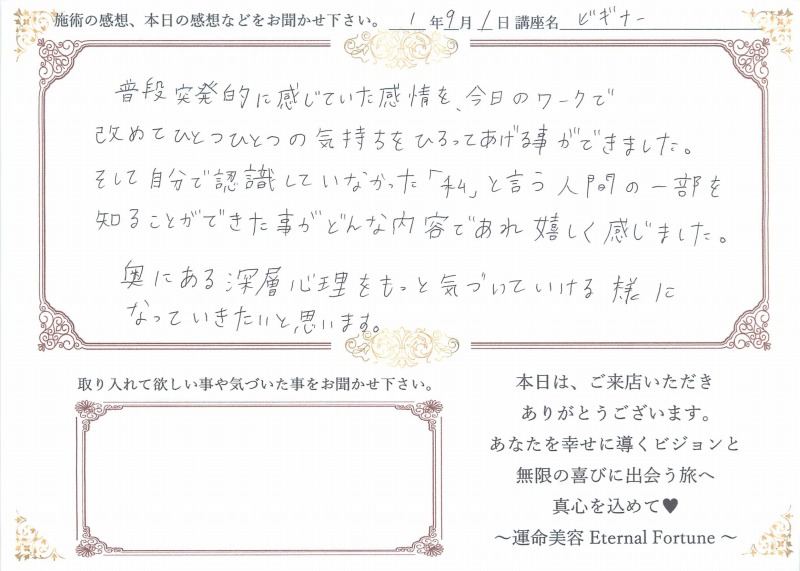 施術の感想、本日の感想などをお聞かせ下さい。 1 年 9 月 1 日 講座名 ビギナー
普段突発的に感じていた感情を、今日のワークで
改めてひとつひとつの気持ちをひろってあげる事ができました。
そして自分で認識していなかった「私」と言う人間の一部を
知ることができた事がどんな内容であれ嬉しく感じました。
奥にある深層心理をもっと気づいていける様に
なっていきたいと思います。
取り入れて欲しい事や気づいた事をお聞かせ下さい。
本日は、ご来店いただき
ありがとうございます。
あなたを幸せに導くビジョンと
無限の喜びに出会う旅へ
真心を込めて♥
～運命美容 Eternal Fortune ～